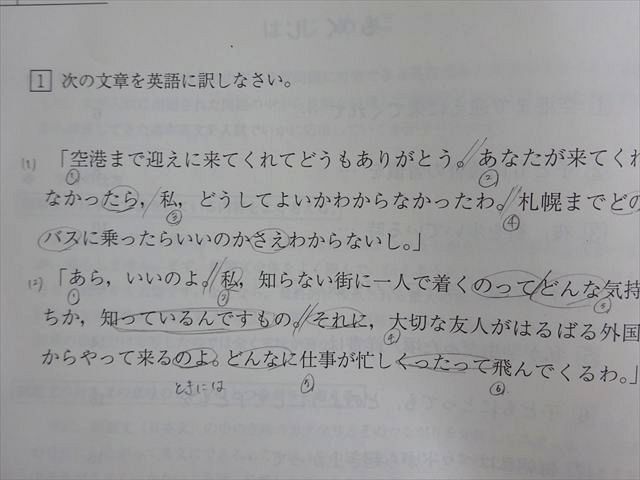 1 次の文章を英語に訳しなさい。
(1) 「空港まで迎えに来てくれてどうもありがとう。あなたが来てくれ
① ②
なかったら，私，どうしてよいかわからなかったわ。札幌までどの
③ ④
バスに乗ったらいいのかさえわからないし。」
(2) 「あら，いいのよ。私，知らない街に一人で着くのって，どんな気持
① ② ③
ちか，知っているんですもの。それに，大切な友人がはるばる外国
④
からやって来るのよ。どんなに仕事が忙しくったって飛んでくるわ。」
ときには ⑤ ⑥